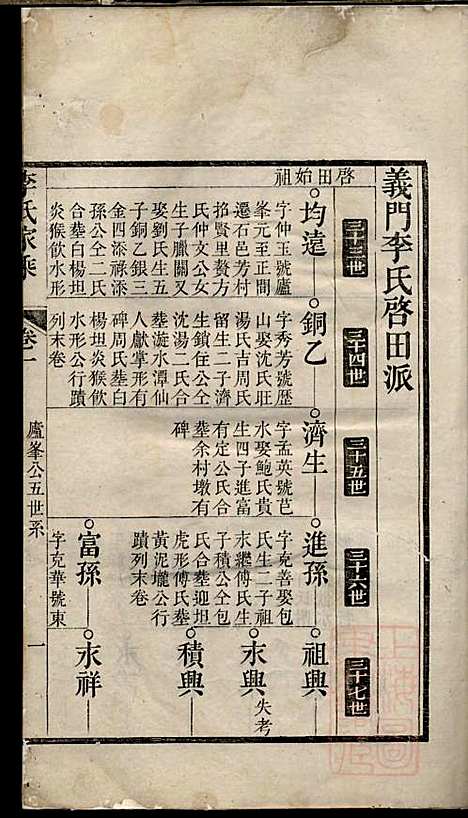 義門李氏啓田派
三十三世
三十四世
三十五世
三十六世
三十七世
啓田始祖
均遠
字仲玉號廬
峯元至正間
遷石邑芳村
掐賢里贅方
氏仲文公女
生子臘關又
娶劉氏生五
子銅乙銀三
金四添祿添
孫公仝二氏
合𦵏白楊坦
炎猴飲水形
銅乙
字秀芳號歷
山娶沈氏旺
湯氏吉周氏
留生二子濟
生鎖住公仝
沈湯二氏合
𦵏漩水潭仙
人獻掌形有
碑周氏𦵏白
楊坦炎猴飲
水形公行蹟
列末卷
濟生
字孟英號芑
水娶鮑氏貴
生四子進富
有定公氏合
𦵏余村墩有
碑
進孫
字克善娶包
氏生二子祖
永繼傅氏生
子積公仝包
氏合𦵏迎坦
虎形傅氏𦵏
黃泥壠公行
蹟列末卷
富孫
字克華號東
祖興
永興
失考
積興
永祥
李氏家乘
卷一
廬峯公五世系
一